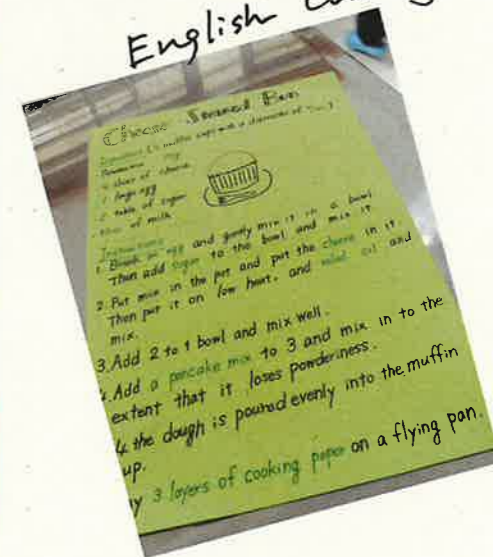 English
Cheese Steamed Bun
muffin cups with a diameter of
slices of cheese
1 large egg
of sugar
of milk
Instructions
1. Break an egg and gently mix it in a bowl
Then add sugar to the bowl and mix it
2. Put milk in the pot and put the cheese in it.
Then put it on low heat. and salad oil and
mix.
3. Add 2 to 1 bowl and mix well.
4. Add a pancake mix to 3 and mix in to the
extent that it loses powderiness.
4 the dough is poured evenly into the muffin
up.
y 3 layers of cooking paper on a flying pan.